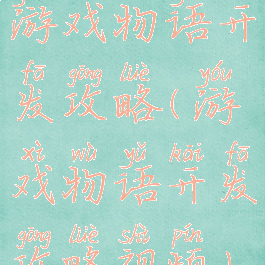 游戏物语开
fā gōng lüè yóu
发攻略(游
xì wù yǔ kāi fā
戏物语开发
gōng lüè shì pín
攻略视频)